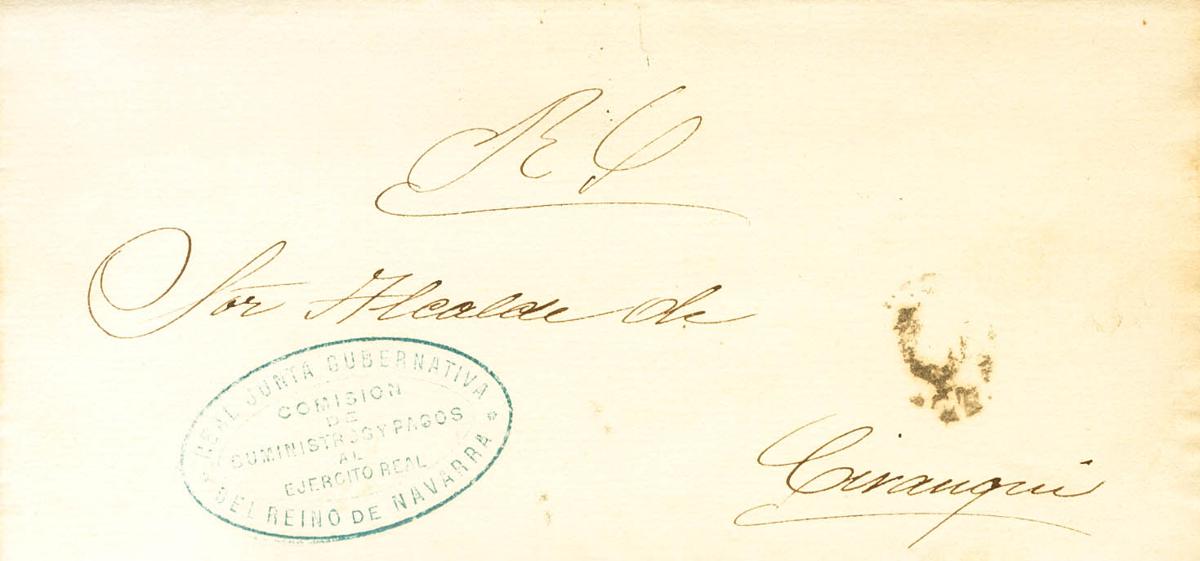 R C
Sor Alcalde de
REAL JUNTA GUBERNATIVA
COMISION
DE
SUMINISTROS Y PAGOS
AL
EJERCITO REAL
DEL REINO DE NAVARRA
Cirauqui